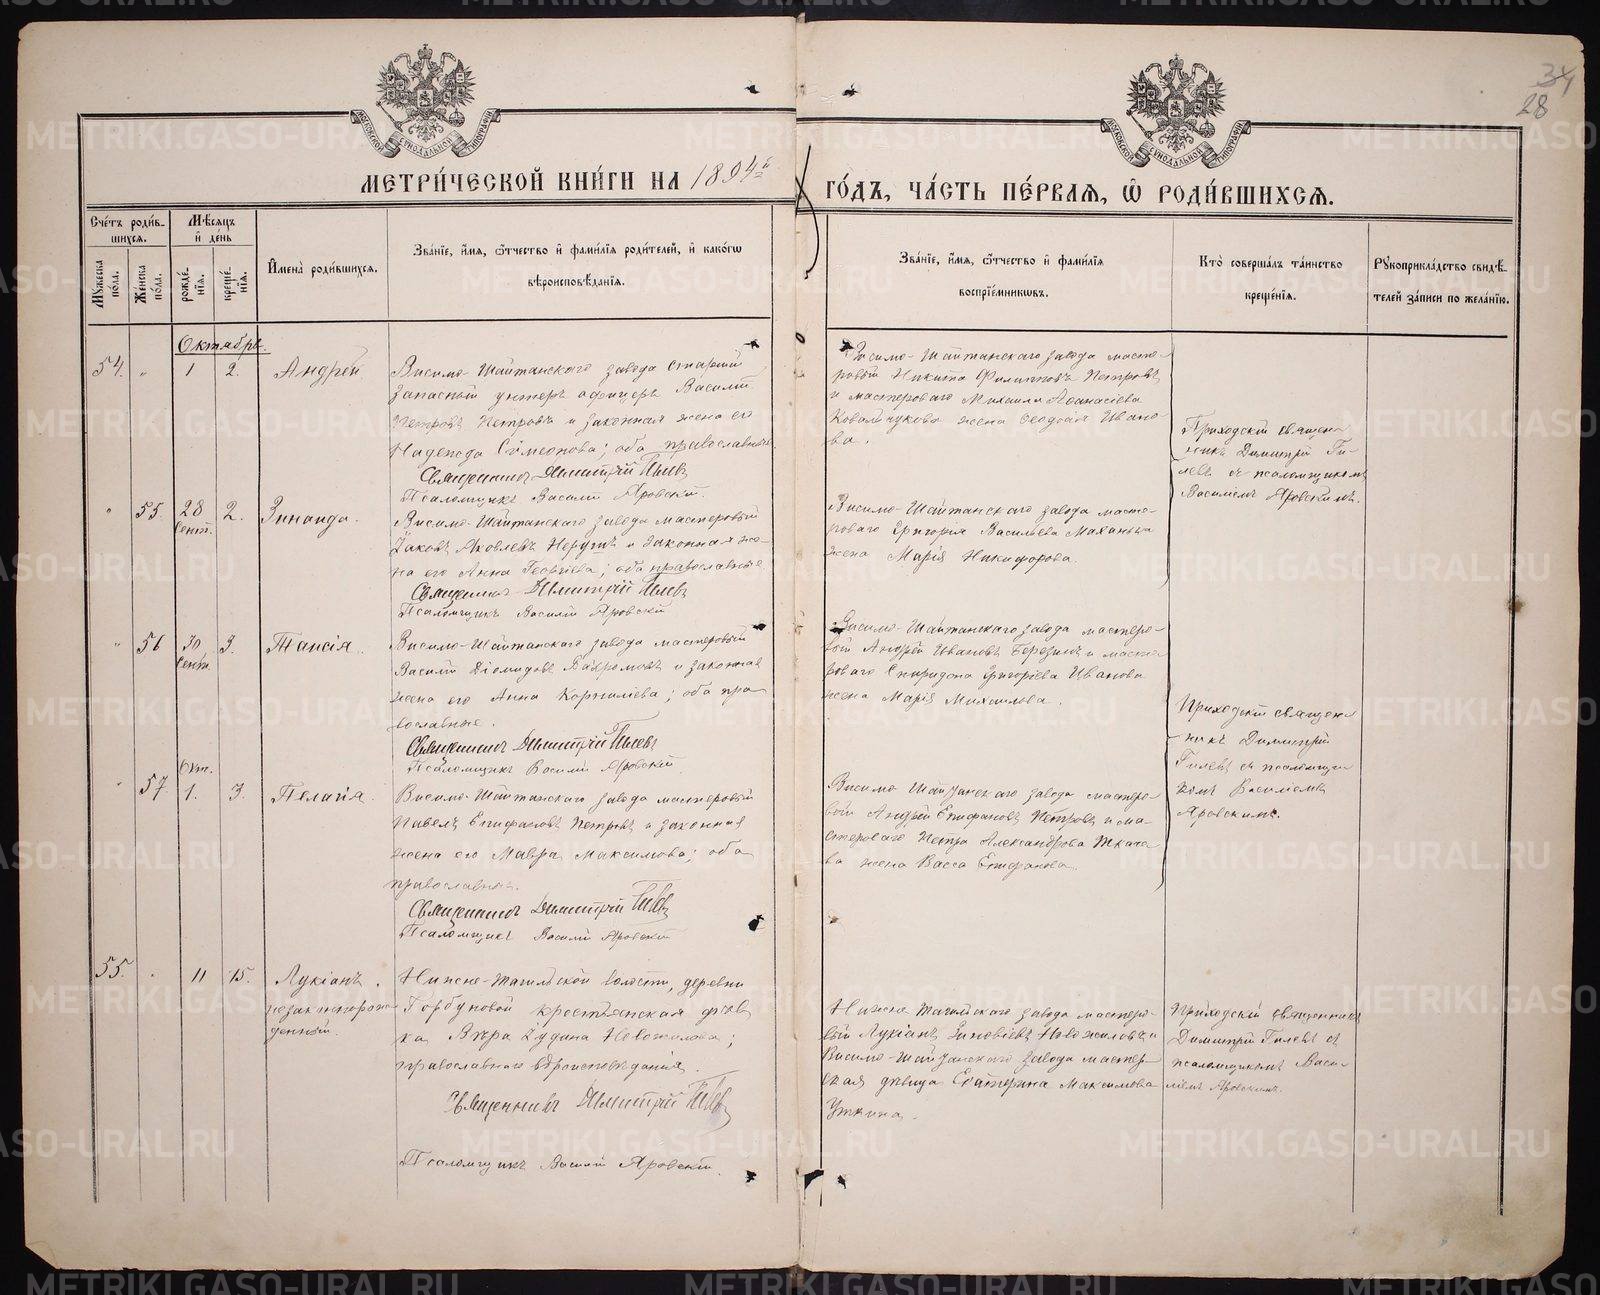 34
28
МОСКОВСКОЙ СѴНОДАЛЬНОЙ ТИПОГРАФІИ
МОСКОВСКОЙ СѴНОДАЛЬНОЙ ТИПОГРАФІИ
МЕТРИ́ЧЕСКОЙ КНИ́ГИ НА 1894й
ГО́ДЪ, ЧА́СТЬ ПЕ́РВАЯ, Ѽ РОДИ́ВШИХСЯ.
Сче́тъ роди́в-
шихся.
Мꙋ́жеска по́ла.
Же́нска по́ла.
Мѣ́сяцъ
и҆ де́нь
рожде́нїѧ.
креще́нїѧ.
И҆мена̀ роди́вшихся.
Зва́нїе, и҆́мя, ѻ҆́тчество и҆ фами́лїя роди́телей, и҆ како́гѡ
вѣроисповѣ́данїя.
Зва́нїе, и҆́мя, ѻ҆́тчество и҆ фами́лїя
воспрїе́мниковъ.
Кто̀ соверша́лъ та́инство
креще́нїя.
Рꙋкоприкла́дство свидѣ́-
телей за́писи по жела́нїю.
Октябрь.
54. „ 1 2. Андрей
Висимо-Шайтанскаго завода старшій
запасный унтеръ офицеръ Василій
Петровъ Петровъ и законная жена его
Надежда Симеонова; оба православные
Священникъ Димитрій Гилевъ
Псаломщикъ Василій Яровскій.
Висимо-Шайтанскаго завода масте-
ровый Никита Филипповъ Петровъ
и мастероваго Михаила Аѳанасіева
Ковальчукова жена Ѳеодосія Ивано-
ва.
Приходскій священ-
никъ Димитрій Ги-
левъ съ псаломщикомъ
Василіемъ Яровскимъ.
„ 55. 28 Сент. 2. Зинаида.
Висимо-Шайтанскаго завода мастеровый
Іаковъ Яковлевъ и законная же-
на его Анна Георгіева; оба православные
Священникъ Димитрій Гилевъ
Псаломщикъ Василій Яровскій
Висимо-Шайтанскаго завода масте-
роваго Григорія Васильева
жена Марія Никифорова.
„ 56 30 Сент. 3. Таисія.
Висимо-Шайтанскаго завода мастеровый
Василій Діомидовъ и законная
жена его Анна Корнилієва; оба пра-
вославные.
Священникъ Димитрій Гилевъ
Псаломщикъ Василій Яровскій
Висимо-Шайтанскаго завода мастеро-
вый Андрей Ивановъ Березинъ и масте-
роваго Спиридона Григоріева Иванова
жена Марія Михайлова.
Приходскій священ-
никъ Димитрій
Гилевъ съ псаломщи-
комъ Василіемъ
Яровскимъ.
„ 57 Окт. 1. 3. Пелагія.
Висимо-Шайтанскаго завода мастеровый
Павелъ Епифановъ Петровъ и законная
жена его Мавра Максимова; оба
православные.
Священникъ Димитрій Гилевъ
Псаломщикъ Василій Яровскій
Висимо-Шайтанскаго завода мастеро-
вой Андрей Епифановъ Петровъ и ма-
стероваго Петра Александрова Ткаче-
ва жена Васса Епифанова.
55. „ 11 15. Лукіанъ.
незаконнорож-
денный.
Нижне-Тагильской волости, деревни
Горбуновой крестьянская дѣв-
ка Вѣра Новожилова;
православнаго вѣроисповѣданія.
Священникъ Димитрій Гилевъ
Псаломщикъ Василій Яровскій.
Нижне Тагильскаго завода мастеро-
вый Лукіанъ Зиновіевъ Новожиловъ и
Висимо-Шайтанскаго завода мастер-
ская дѣвица Екатерина Максимова
Уткина.
Приходскій священникъ
Димитрій Гилевъ съ
псаломщикомъ Васи-
ліемъ Яровскимъ.
METRIKI.GASO-URAL.RU